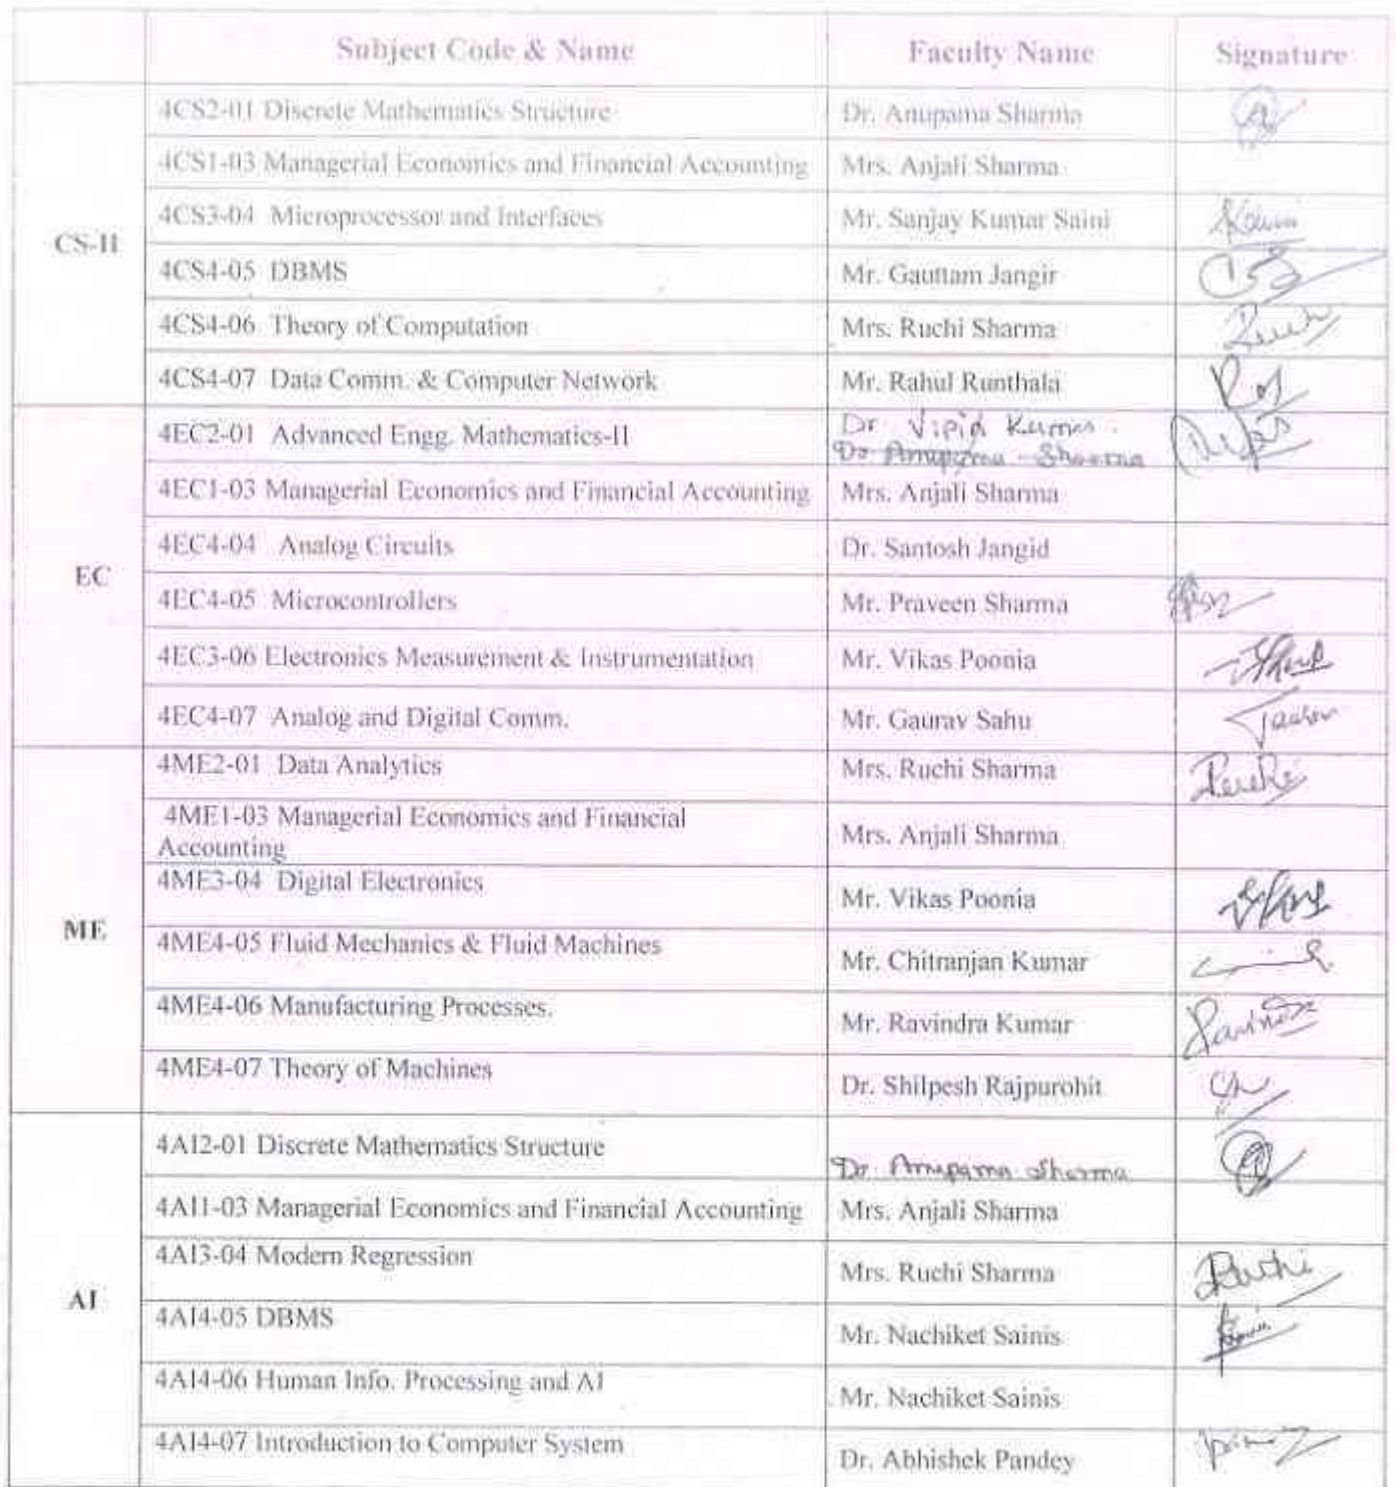 Subject Code & Name Faculty Name Signature
CS-II
4CS2-01 Discrete Mathematics Structure Dr. Anupama Sharma
4CS1-03 Managerial Economics and Financial Accounting Mrs. Anjali Sharma
4CS3-04 Microprocessor and Interfaces Mr. Sanjay Kumar Saini
4CS4-05 DBMS Mr. Gauttam Jangir
4CS4-06 Theory of Computation Mrs. Ruchi Sharma
4CS4-07 Data Comm. & Computer Network Mr. Rahul Runthala
EC
4EC2-01 Advanced Engg. Mathematics-II Dr. Vipin Kumar.
Dr. Anupama Sharma
4EC1-03 Managerial Economics and Financial Accounting Mrs. Anjali Sharma
4EC4-04 Analog Circuits Dr. Santosh Jangid
4EC4-05 Microcontrollers Mr. Praveen Sharma
4EC3-06 Electronics Measurement & Instrumentation Mr. Vikas Poonia
4EC4-07 Analog and Digital Comm. Mr. Gaurav Sahu
ME
4ME2-01 Data Analytics Mrs. Ruchi Sharma Ruchi
4ME1-03 Managerial Economics and Financial
Accounting Mrs. Anjali Sharma
4ME3-04 Digital Electronics Mr. Vikas Poonia
4ME4-05 Fluid Mechanics & Fluid Machines Mr. Chitranjan Kumar
4ME4-06 Manufacturing Processes. Mr. Ravindra Kumar Ravindra
4ME4-07 Theory of Machines Dr. Shilpesh Rajpurohit
AI
4AI2-01 Discrete Mathematics Structure Dr. Anupama Sharma
4AI1-03 Managerial Economics and Financial Accounting Mrs. Anjali Sharma
4AI3-04 Modern Regression Mrs. Ruchi Sharma Ruchi
4AI4-05 DBMS Mr. Nachiket Sainis
4AI4-06 Human Info. Processing and AI Mr. Nachiket Sainis
4AI4-07 Introduction to Computer System Dr. Abhishek Pandey